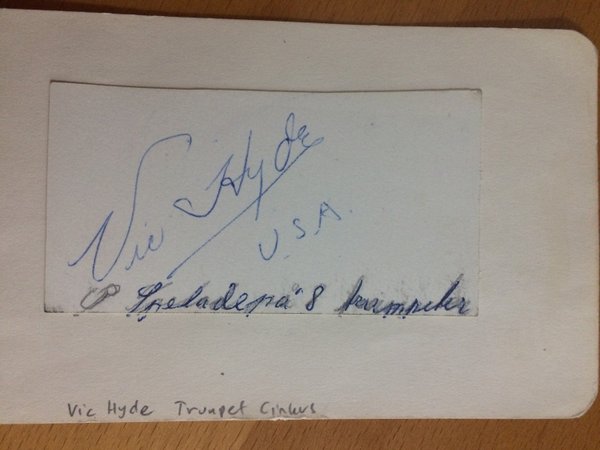 Vic Hyde
U.S.A.
Spelade på 8 trumpeter
Vic Hyde Trumpet Cirkus